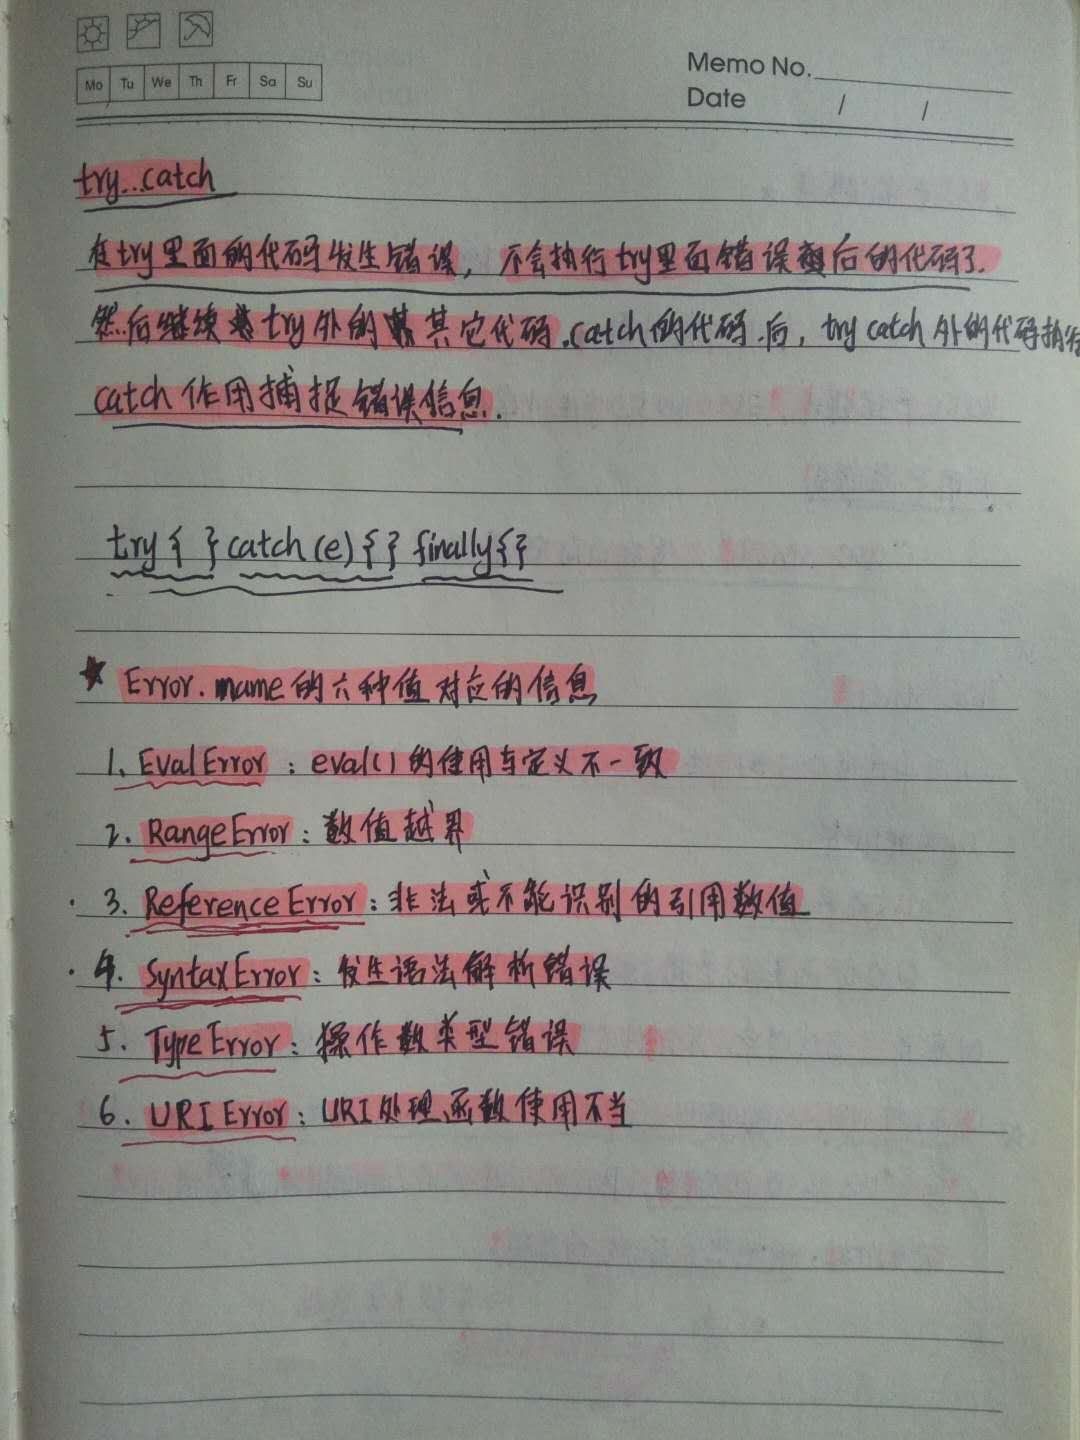 Mo Tu We Th Fr Sa Su
Memo No.
Date / /
try...catch
在try里面的代码发生错误，不会执行try里面错误后的代码了.
然后继续try外的其它代码.catch的代码.后，try catch外的代码执行
catch作用捕捉错误信息.
try{ }catch(e){} finally{}
★ Error.name的六种值对应的信息
1、EvalError：eval()的使用与定义不一致
2. RangeError：数值越界
3. ReferenceError：非法或不能识别的引用数值
4. SyntaxError：发生语法解析错误
5. TypeError：操作数类型错误
6. URIError：URI处理函数使用不当